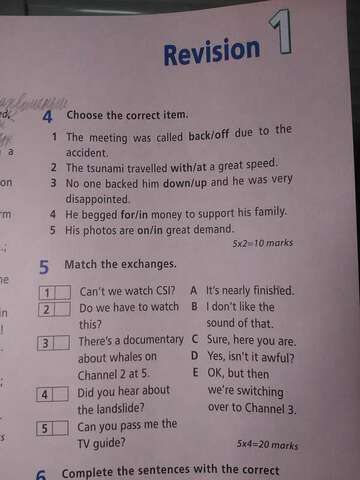 Revision 1
4 Choose the correct item.
1 The meeting was called back/off due to the
accident.
2 The tsunami travelled with/at a great speed.
3 No one backed him down/up and he was very
disappointed.
4 He begged for/in money to support his family.
5 His photos are on/in great demand.
5x2=10 marks
5 Match the exchanges.
1 Can't we watch CSI? A It's nearly finished.
2 Do we have to watch B I don't like the
this? sound of that.
3 There's a documentary C Sure, here you are.
about whales on D Yes, isn't it awful?
Channel 2 at 5. E OK, but then
4 Did you hear about we're switching
the landslide? over to Channel 3.
5 Can you pass me the
TV guide? 5x4=20 marks
6 Complete the sentences with the correct